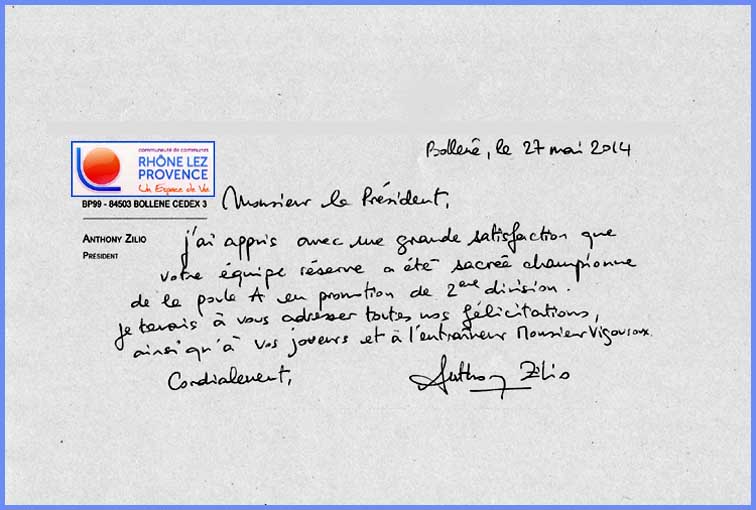 Bollène, le 27 mai 2014
communauté de communes
RHÔNE LEZ
PROVENCE
Un Espace de Vie
BP99 - 84503 BOLLENE CEDEX 3
Monsieur le Président,
ANTHONY ZILIO
PRÉSIDENT
j'ai appris avec une grande satisfaction que
votre équipe réserve a été sacrée championne
de la poule A en promotion de 2ème division.
Je tenais à vous adresser toutes nos félicitations,
ainsi qu'à vos joueurs et à l'entraîneur Monsieur Vigouroux.
Cordialement,
Anthony Zilio